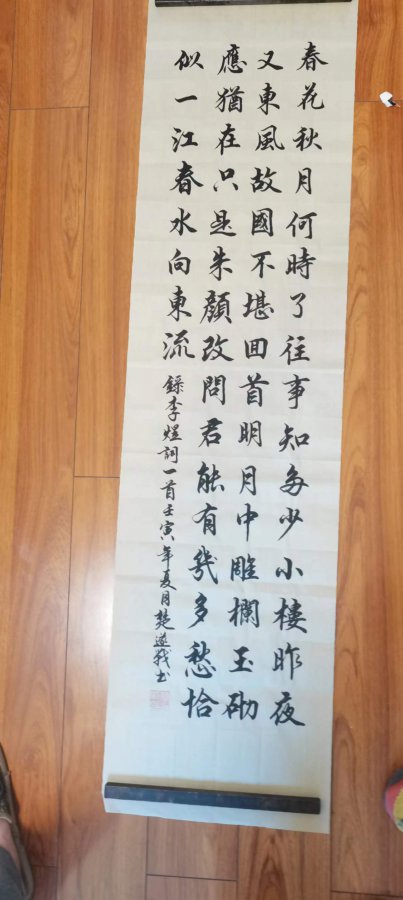 春花秋月何時了往事知多少小樓昨夜
又東風故國不堪回首明月中雕欄玉砌
應猶在只是朱顏改問君能有幾多愁恰
似一江春水向東流
錄李煜詞一首壬寅年夏月楚遊我书